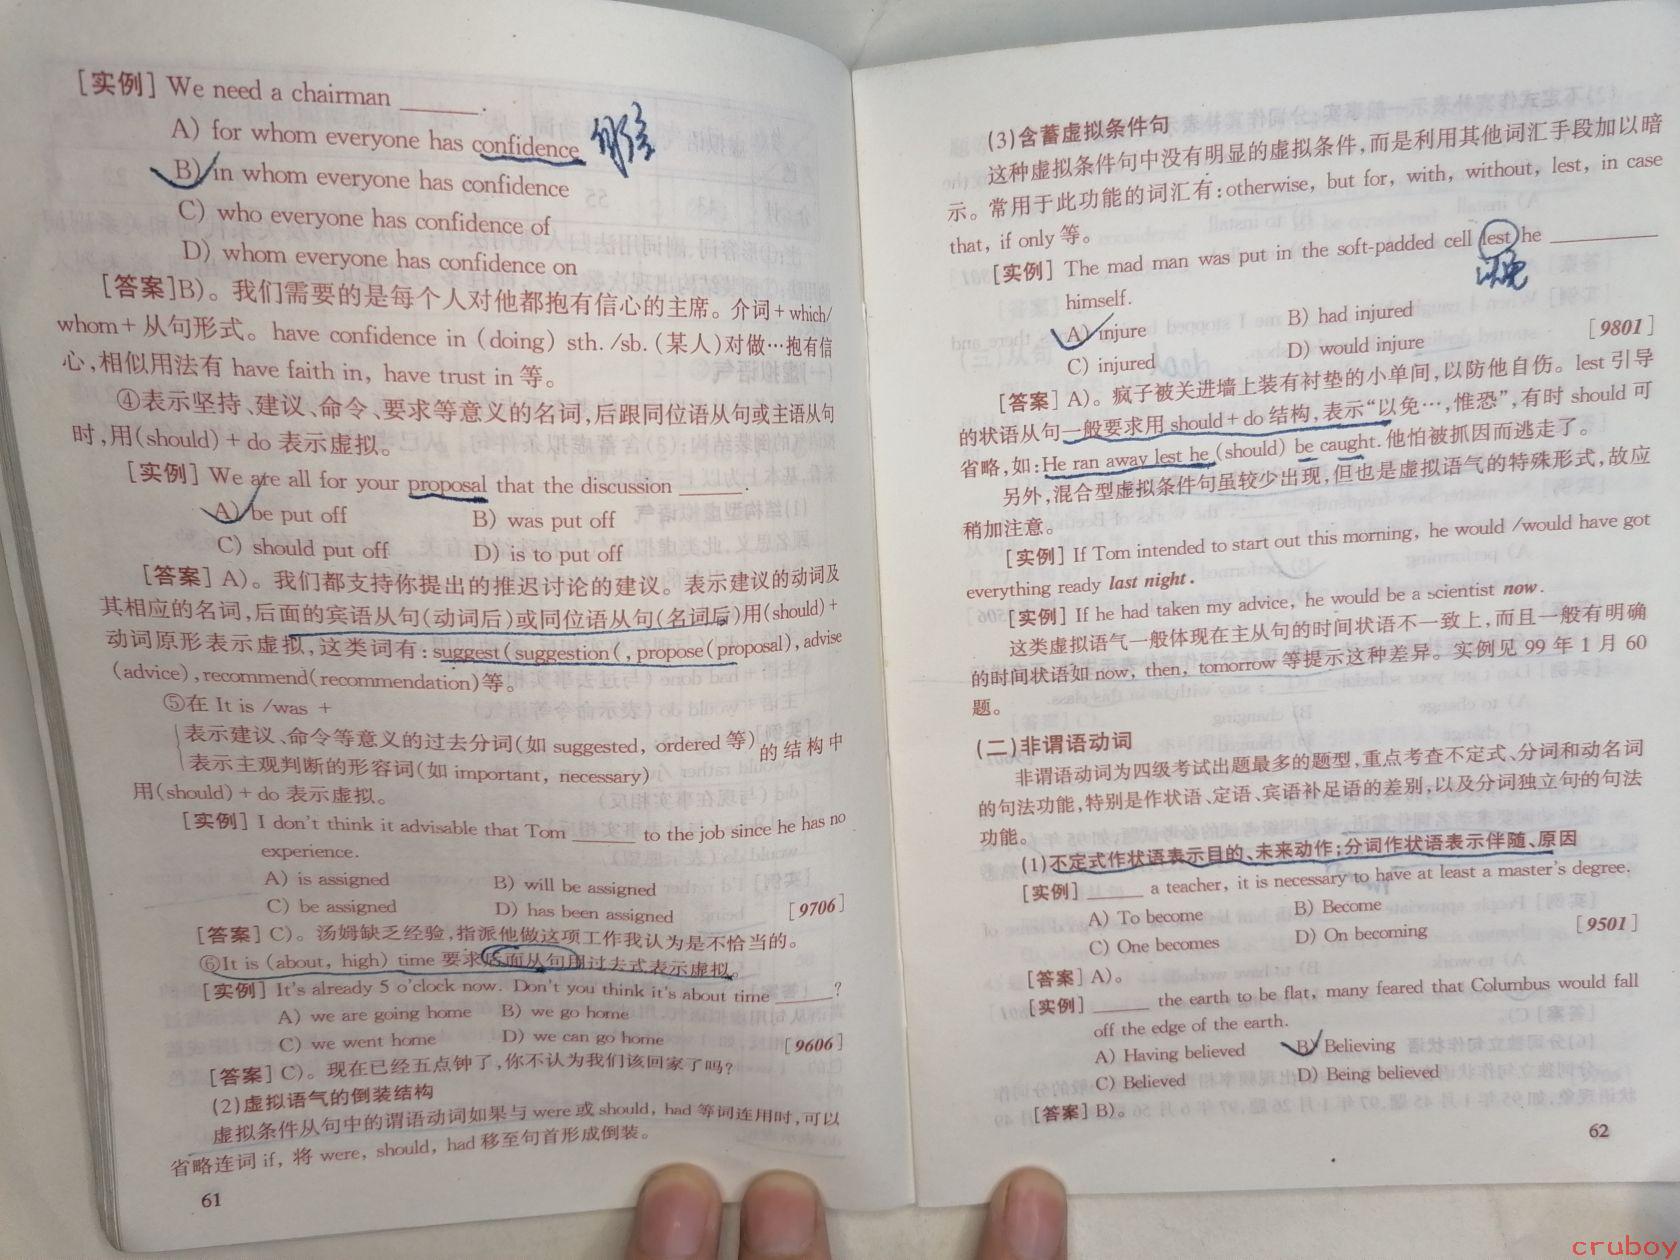 [实例] We need a chairman ______.
A) for whom everyone has confidence
B) in whom everyone has confidence
C) who everyone has confidence of
D) whom everyone has confidence on
[答案]B)。我们需要的是每个人对他都抱有信心的主席。介词+which/
whom+从句形式。have confidence in (doing) sth./sb.(某人)对做…抱有信
心,相似用法有 have faith in, have trust in 等。
④表示坚持、建议、命令、要求等意义的名词,后跟同位语从句或主语从句
时,用(should)+do 表示虚拟。
[实例] We are all for your proposal that the discussion ______.
A) be put off B) was put off
C) should put off D) is to put off
[答案] A)。我们都支持你提出的推迟讨论的建议。表示建议的动词及
其相应的名词,后面的宾语从句(动词后)或同位语从句(名词后)用(should)+
动词原形表示虚拟,这类词有:suggest(suggestion(, propose(proposal), advise
(advice), recommend(recommendation)等。
⑤在 It is /was +
表示建议、命令等意义的过去分词(如 suggested, ordered 等)的结构中
表示主观判断的形容词(如 important, necessary)
用(should)+do 表示虚拟。
[实例] I don't think it advisable that Tom ______ to the job since he has no
experience.
A) is assigned B) will be assigned
C) be assigned D) has been assigned [9706]
[答案] C)。汤姆缺乏经验,指派他做这项工作我认为是不恰当的。
⑥It is (about, high) time 要求后面从句用过去式表示虚拟。
[实例] It's already 5 o'clock now. Don't you think it's about time ______?
A) we are going home B) we go home
C) we went home D) we can go home [9606]
[答案] C)。现在已经五点钟了,你不认为我们该回家了吗?
(2)虚拟语气的倒装结构
虚拟条件从句中的谓语动词如果与 were 或 should, had 等词连用时,可以
省略连词 if, 将 were, should, had 移至句首形成倒装。
61
(3)含蓄虚拟条件句
这种虚拟条件句中没有明显的虚拟条件,而是利用其他词汇手段加以暗
示。常用于此功能的词汇有:otherwise, but for, with, without, lest, in case
that, if only 等。
[实例] The mad man was put in the soft-padded cell lest he ______
以免
himself.
A) injure B) had injured
C) injured D) would injure [9801]
[答案] A)。疯子被关进墙上装有衬垫的小单间,以防他自伤。lest 引导
的状语从句一般要求用 should+do 结构,表示“以免…,惟恐”,有时 should 可
省略,如:He ran away lest he (should) be caught. 他怕被抓因而逃走了。
另外,混合型虚拟条件句虽较少出现,但也是虚拟语气的特殊形式,故应
稍加注意。
[实例] If Tom intended to start out this morning, he would /would have got
everything ready last night.
[实例] If he had taken my advice, he would be a scientist now.
这类虚拟语气一般体现在主从句的时间状语不一致上,而且一般有明确
的时间状语如 now, then, tomorrow 等提示这种差异。实例见 99 年 1 月 60
题。
(二)非谓语动词
非谓语动词为四级考试出题最多的题型,重点考查不定式、分词和动名词
的句法功能,特别是作状语、定语、宾语补足语的差别,以及分词独立句的句法
功能。
(1)不定式作状语表示目的、未来动作;分词作状语表示伴随、原因
[实例] ______ a teacher, it is necessary to have at least a master's degree.
A) To become B) Become
C) One becomes D) On becoming [9501]
[答案] A)。
[实例] ______ the earth to be flat, many feared that Columbus would fall
off the edge of the earth.
A) Having believed B) Believing
C) Believed D) Being believed
[答案] B)。
62
cruboy